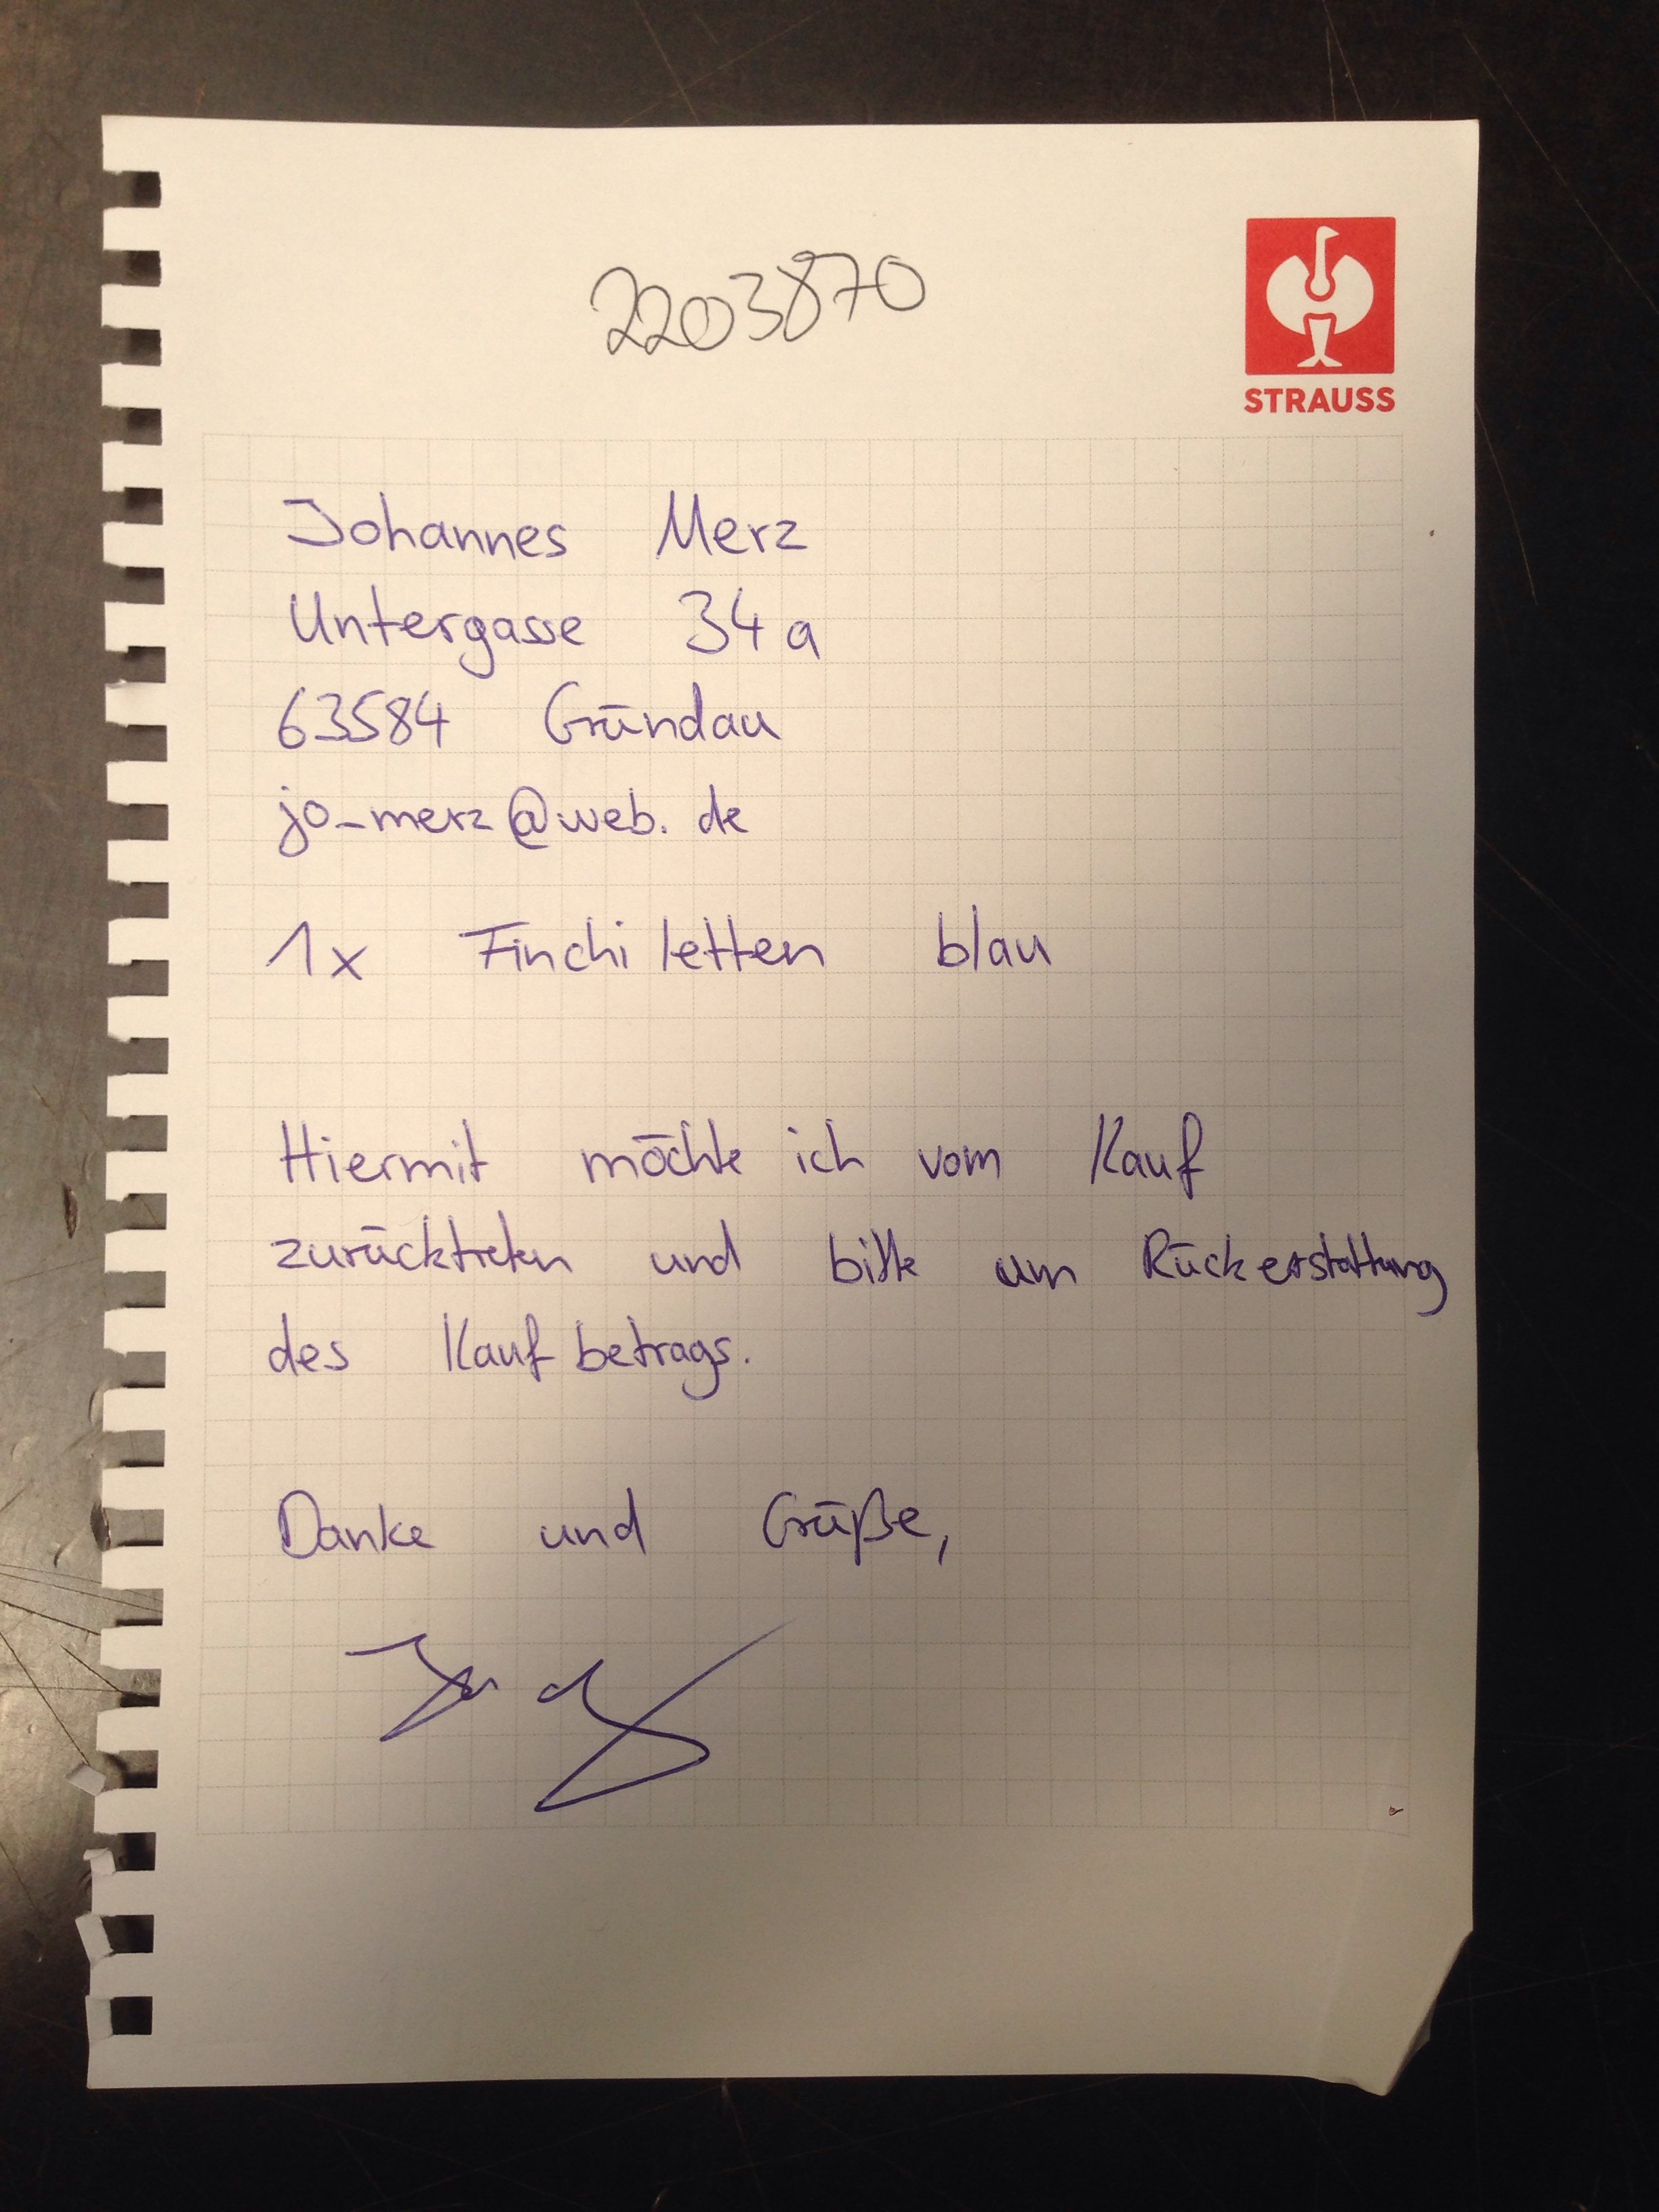 2203870
STRAUSS
Johannes Merz
Untergasse 34a
63584 Gründau
jo_merz@web.de
1x Finchiletten blau
Hiermit möchte ich vom Kauf
zurücktreten und bitte um Rückerstattung
des Kaufbetrags.
Danke und Grüße,